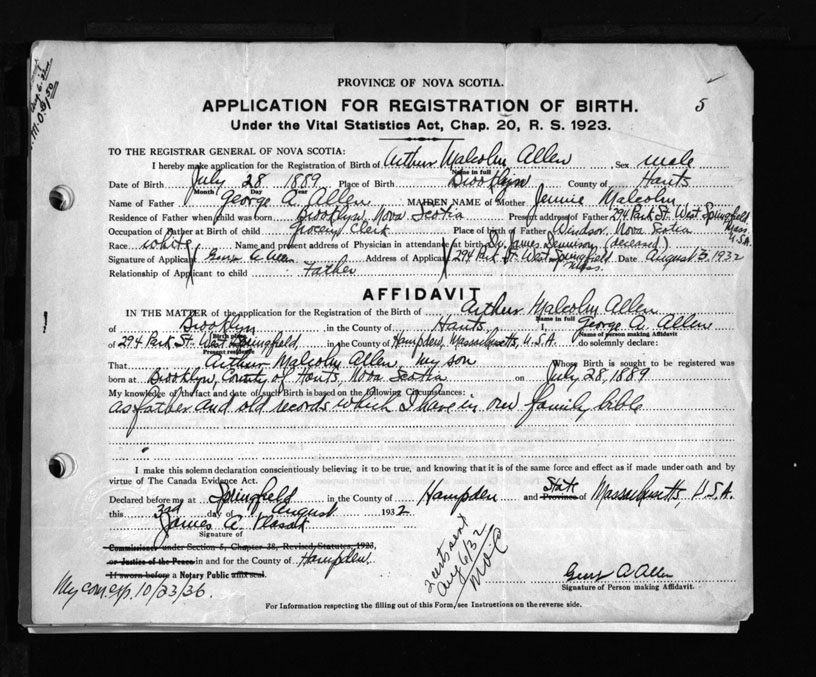 PROVINCE OF NOVA SCOTIA.
APPLICATION FOR REGISTRATION OF BIRTH. 5
Under the Vital Statistics Act, Chap. 20, R. S. 1923.
TO THE REGISTRAR GENERAL OF NOVA SCOTIA:
I hereby make application for the Registration of Birth of Arthur Malcolm Allen Sex male
Name in full
Date of Birth July 28 1889 Place of Birth Brooklyn County of Hants
Month Day Year
Name of Father George A. Allen MAIDEN NAME of Mother Jennie Malcolm
Residence of Father when child was born Brooklyn, Nova Scotia Present address of Father 294 Park St. West Springfield Mass. U.S.A.
Occupation of Father at Birth of child Grocery Clerk Place of birth of Father Windsor, Nova Scotia
Race white Name and present address of Physician in attendance at birth Dr. James Dennison (deceased)
Signature of Applicant George A Allen Address of Applicant 294 Park St. West Springfield Mass. Date August 3, 1932
Relationship of Applicant to child Father
AFFIDAVIT
IN THE MATTER of the application for the Registration of the Birth of Arthur Malcolm Allen
Name in full
of Brooklyn in the County of Hants I, George A. Allen
Birth place Name of person making Affidavit
of 294 Park St. West Springfield, in the County of Hampden, Massachusetts, U.S.A. do solemnly declare:
Present residence
That Arthur Malcolm Allen, my son Whose Birth is sought to be registered was
born at Brooklyn, County of Hants, Nova Scotia on July 28, 1889
My knowledge of the fact and date of such Birth is based on the following Circumstances:
as father and old records which I have in our family bible
I make this solemn declaration conscientiously believing it to be true, and knowing that it is of the same force and effect as if made under oath and by
virtue of The Canada Evidence Act.
Declared before me at Springfield in the County of Hampden and State Province of Massachusetts, U.S.A.
this 3rd day of August 1932
James A.
Signature of
Commissary under Section 5, Chapter 38, Revised Statutes, 1923,
or Justice of the Peace in and for the County of Hampden.
If sworn before a Notary Public affix seal.
My com. exp. 10/23/36.
sent
Aug 6/32
M.O.C
George A Allen
Signature of Person making Affidavit.
For Information respecting the filling out of this Form, see Instructions on the reverse side.